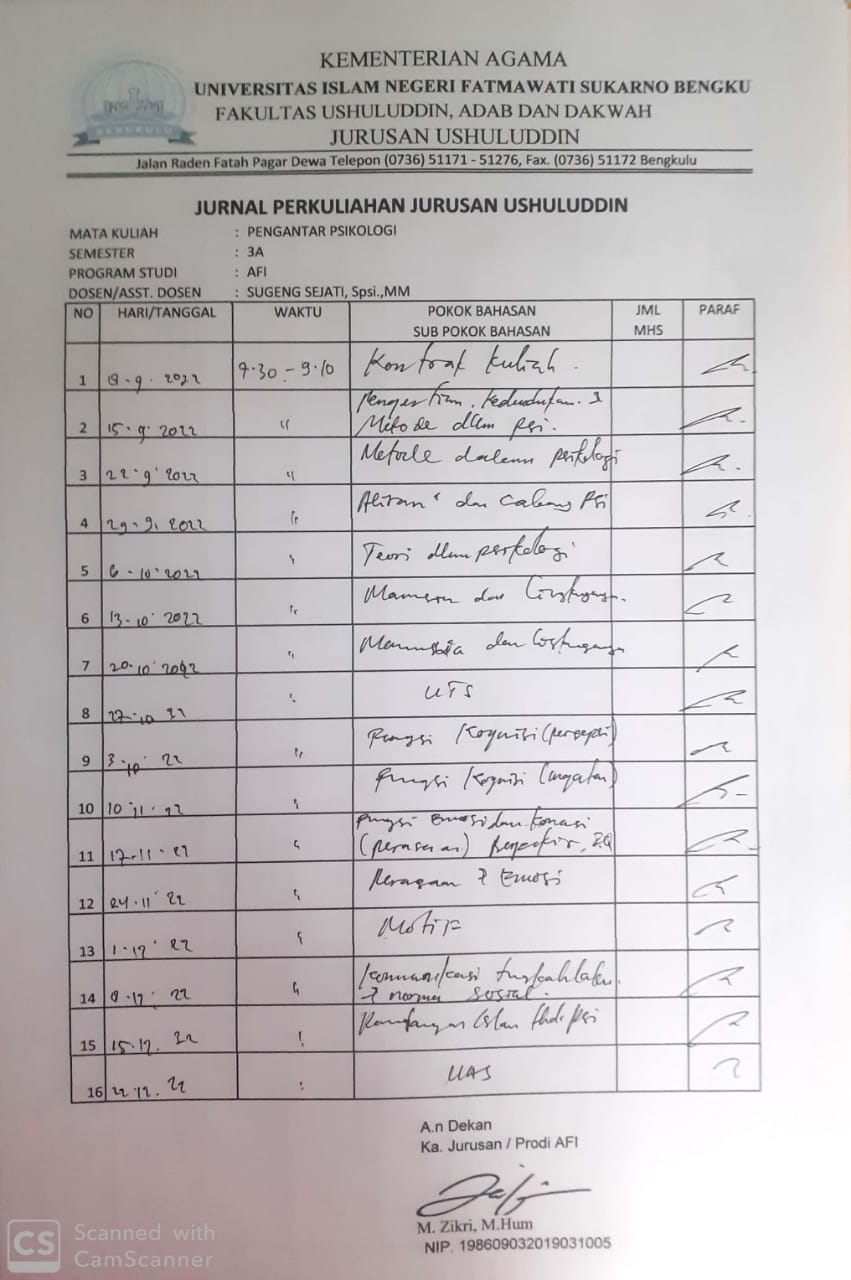 KEMENTERIAN AGAMA
UNIVERSITAS ISLAM NEGERI FATMAWATI SUKARNO BENGKU
FAKULTAS USHULUDDIN, ADAB DAN DAKWAH
JURUSAN USHULUDDIN
BENGKULU
Jalan Raden Fatah Pagar Dewa Telepon (0736) 51171 - 51276, Fax. (0736) 51172 Bengkulu
JURNAL PERKULIAHAN JURUSAN USHULUDDIN
MATA KULIAH : PENGANTAR PSIKOLOGI
SEMESTER : 3A
PROGRAM STUDI : AFI
DOSEN/ASST. DOSEN : SUGENG SEJATI, Spsi.,MM
NO HARI/TANGGAL WAKTU POKOK BAHASAN JML PARAF
SUB POKOK BAHASAN MHS
1 8.9.2022 7.30 - 9.10 Kontrak Kuliah.
Pengertian, Kedudukan &
2 15.9.2022 " Metode dlm psi.
3 22.9.2022 " Metode dalam psikologi
4 29.9.2022 " Aliran" dan Cabang Psi
5 6.10.2022 " Teori dlm psikologi
6 13.10.2022 " dan Lingkungan.
7 20.10.2022 " Manusia dan Lingkungan
8 27.10 22 " UTS
9 3.10 22 " Fungsi Kognisi (persepsi)
10 10.11.22 " Fungsi Kognisi (ingatan)
Fungsi Emosi dan Konasi
11 17.11.22 " (perasaan) Berpikir,
12 24.11.22 " Perasaan & Emosi
13 1.12.22 " Motif
Komunikasi tingkahlaku
14 8.12.22 " & norma sosial.
15 15.12.22 " Pandangan Islam thdp Psi
16 22.12.22 " UAS
A.n Dekan
Ka. Jurusan / Prodi AFI
M. Zikri, M.Hum
NIP. 198609032019031005
CS Scanned with
CamScanner